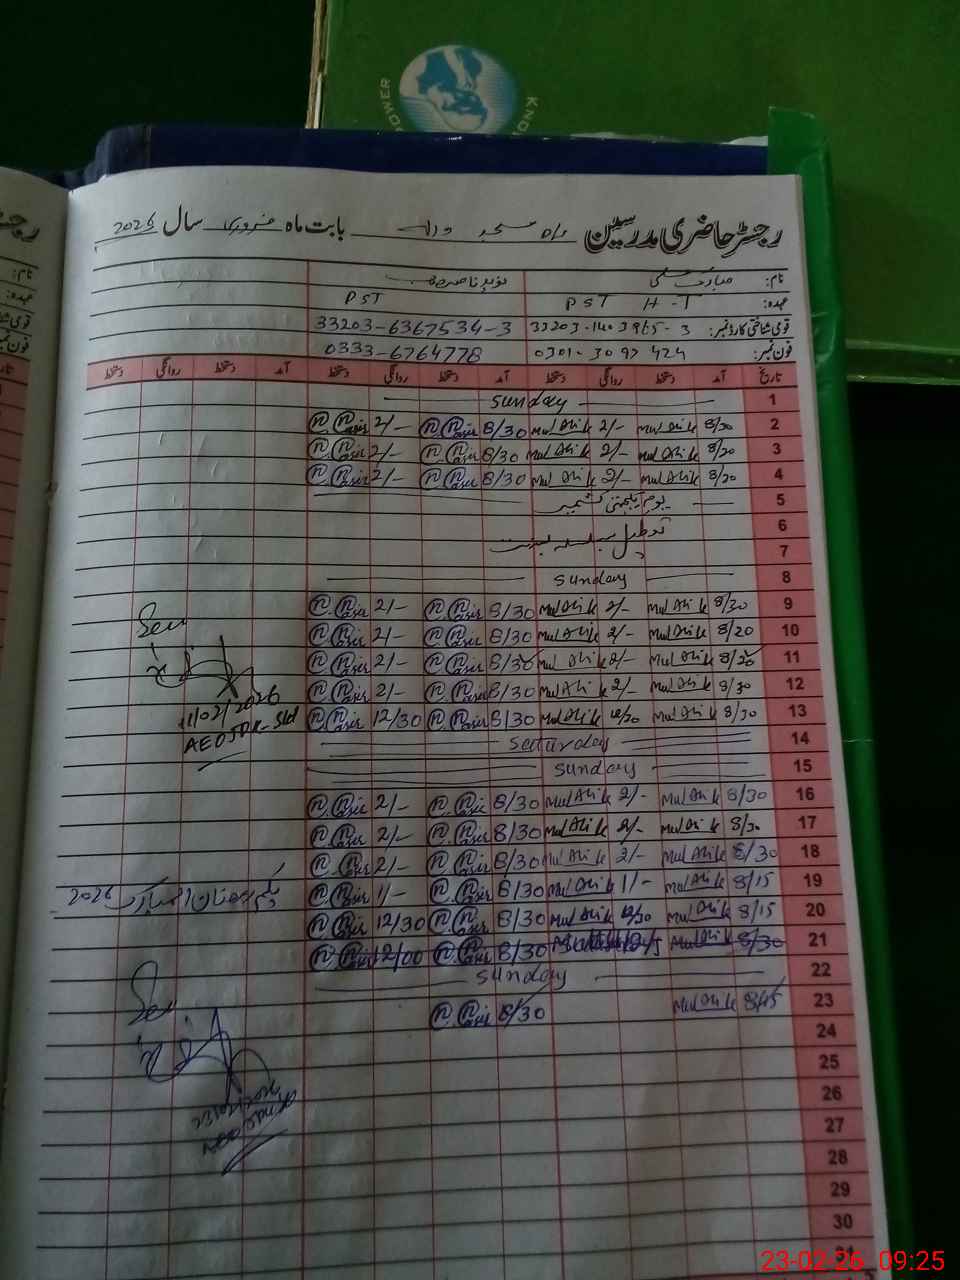 POWER
KNO
رجسٹر حاضری مدرسین مسجد بابت ماہ فروری سال 2026
نام: مبارک علی
عہدہ: PST H-T PST
قومی شناختی کارڈ نمبر: 33203-6367534-3
فون نمبر: 0301-3097424 0333-6764778
تاریخ آمد دستخط روانگی دستخط آمد دستخط روانگی دستخط آمد دستخط روانگی دستخط
1 Sunday
2 8/30 Mul Alik 2/- Mul Alik 8/30 Nasir 2/- Nasir
3 8/20 Mul Alik 2/- Mul Alik 8/30 Nasir 2/- Nasir
4 8/20 Mul Alik 2/- Mul Alik 8/30 Nasir 2/- Nasir
5 یوم یکجہتی کشمیر
6 تعطیل بسلسلہ بسنت
7
8 Sunday
9 8/30 Mul Alik 2/- Mul Alik 8/30 Nasir 2/- Nasir
10 8/20 Mul Alik 2/- Mul Alik 8/30 Nasir 2/- Nasir
Seen
11 8/20 Mul Alik 2/- Mul Alik 8/30 Nasir 2/- Nasir
12 8/30 Mul Alik 2/- Mul Alik 8/30 Nasir 2/- Nasir
13 8/30 Mul Alik 12/30 Mul Alik 8/30 Nasir 12/30 Nasir
11/02/2026
14 Saturday
15 Sunday
16 8/30 Mul Alik 2/- Mul Alik 8/30 Nasir 2/- Nasir
17 8/30 Mul Alik 2/- Mul Alik 8/30 Nasir 2/- Nasir
18 8/30 Mul Alik 2/- Mul Alik 8/30 Nasir 2/- Nasir
19 8/15 Mul Alik 1/- Mul Alik 8/30 Nasir 1/- Nasir یکم رمضان المبارک 2026
20 8/15 Mul Alik 12/30 Mul Alik 8/30 Nasir 12/30 Nasir
21 8/30 Mul Alik 8/30 Nasir 12/00 Nasir
22 Sunday
23 8/45 Mul Alik 8/30 Nasir
Seen
24
25
26
23/02/2026
27
28
29
30
31
23-02-26 09:25